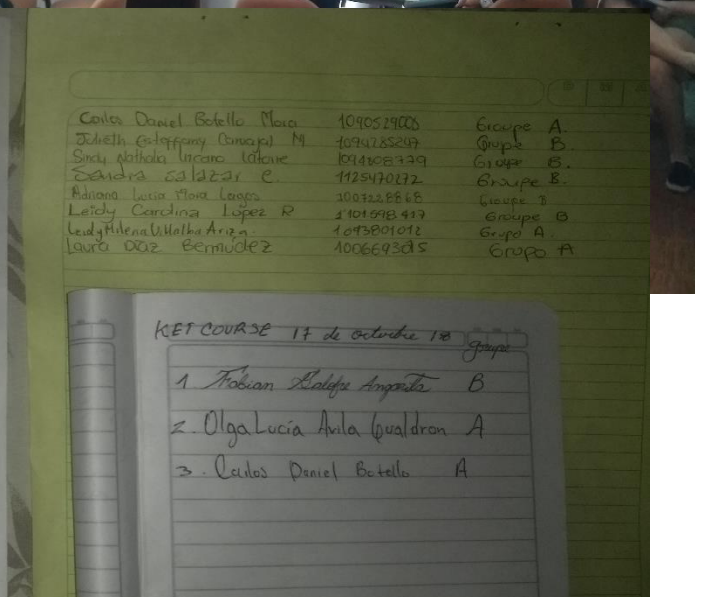 Carlos Daniel Botello Mora 1090529005 Groupe A.
Julieth Esteffanny Carvajal M 1094285297 Groupe B
Sindy Nathalia Lizcano Latorre 1094808779 Groupe B.
Sandra Salazar C. 1125470272 Groupe B.
Adriana Lucia Mora 1007228868 Groupe B
Leidy Carolina López R 1101598417 Groupe B
Leidy Milena Villalba Ariza. 1093801012 Grupo A.
Laura Díaz Bermúdez Grupo A
KET COURSE 17 de octubre 18 groupe
1 Fabian B
2. Olga Lucía Avila Gualdron A
3. Carlos Daniel Botello A